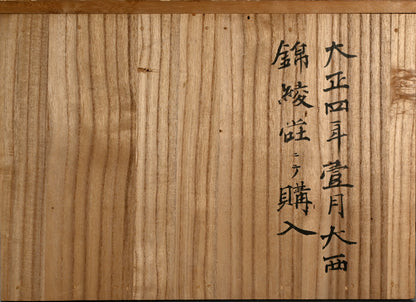 大正四年壹月大西
錦綾堂ニテ購入